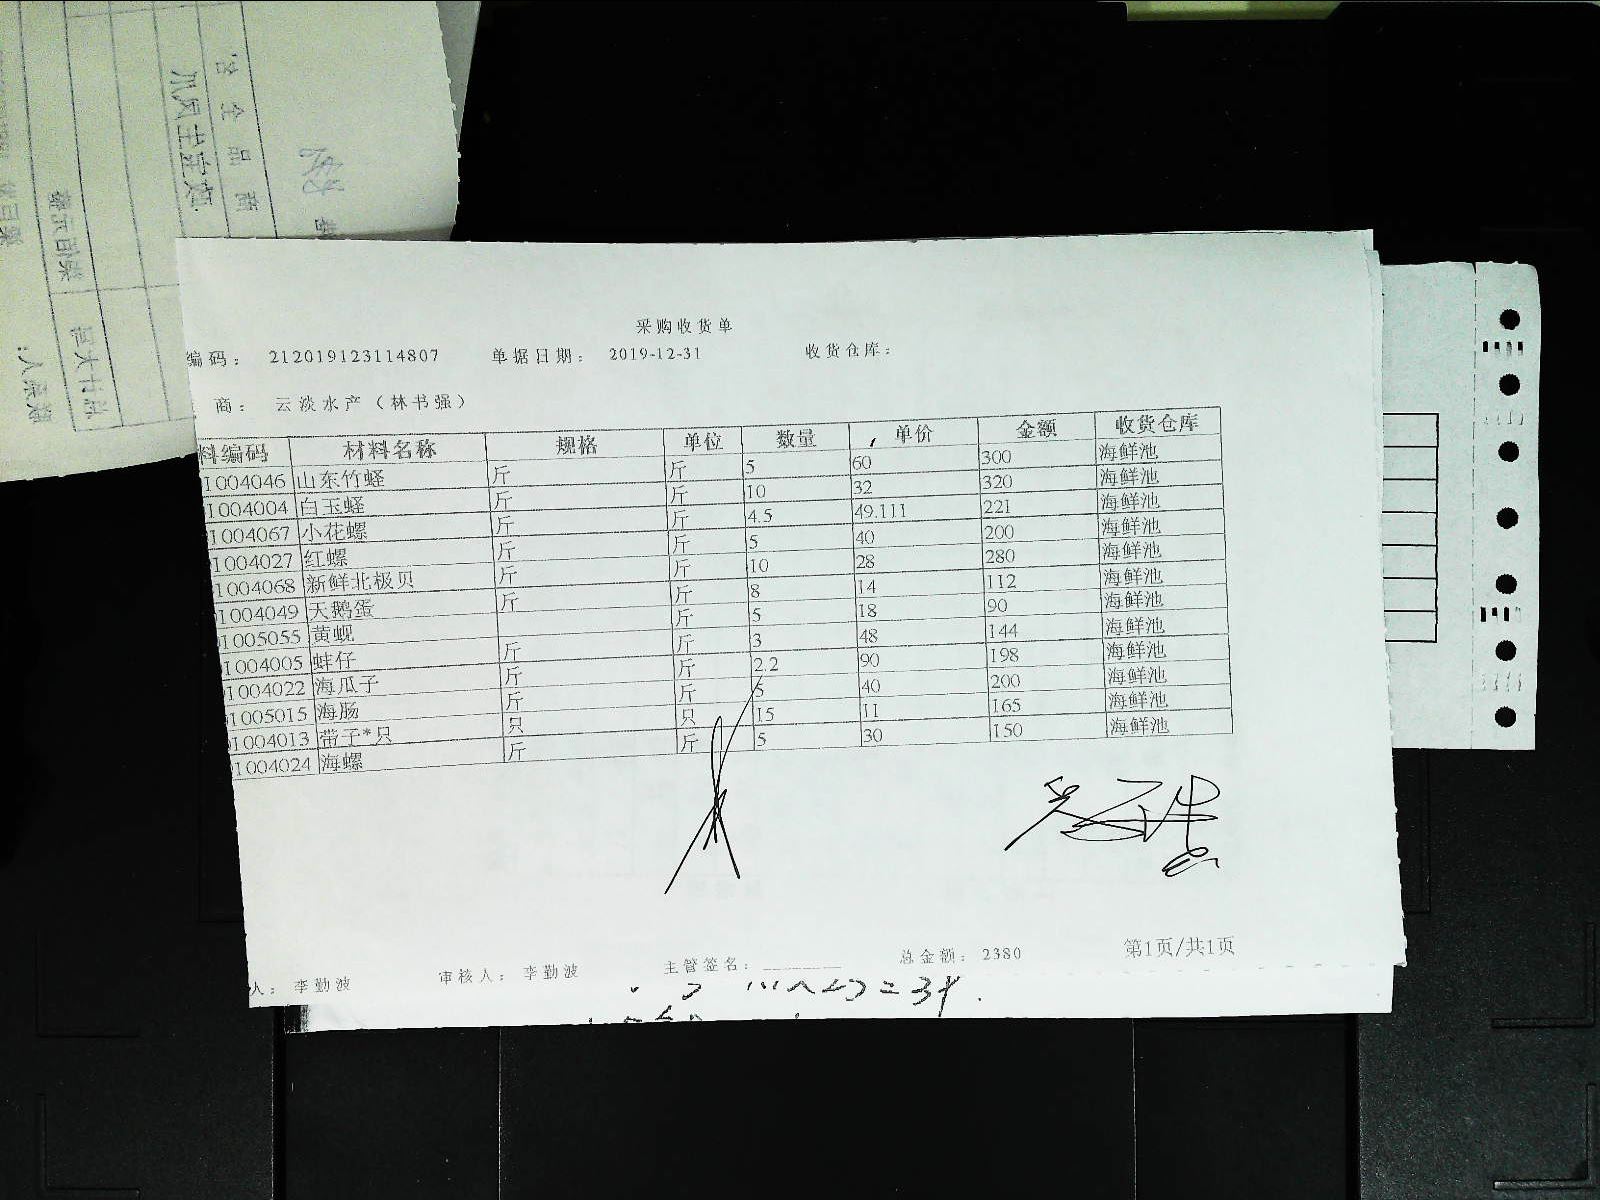 采购收货单
编码： 212019123114807 单据日期： 2019-12-31 收货仓库：
商： 云淡水产（林书强）
料编码 材料名称 规格 单位 数量 单价 金额 收货仓库
1004046 山东竹蛏 斤 斤 5 60 300 海鲜池
1004004 白玉蛏 斤 斤 10 32 320 海鲜池
1004067 小花螺 斤 斤 4.5 49.111 221 海鲜池
1004027 红螺 斤 斤 5 40 200 海鲜池
1004068 新鲜北极贝 斤 斤 10 28 280 海鲜池
1004049 天鹅蛋 斤 斤 8 14 112 海鲜池
1005055 黄蚬 斤 5 18 90 海鲜池
1004005 蚌仔 斤 斤 3 48 144 海鲜池
1004022 海瓜子 斤 斤 2.2 90 198 海鲜池
1005015 海肠 斤 斤 5 40 200 海鲜池
1004013 带子*只 只 只 15 11 165 海鲜池
1004024 海螺 斤 斤 5 30 150 海鲜池
人： 李勤波 审核人： 李勤波 主管签名： 总金额： 2380 第1页/共1页